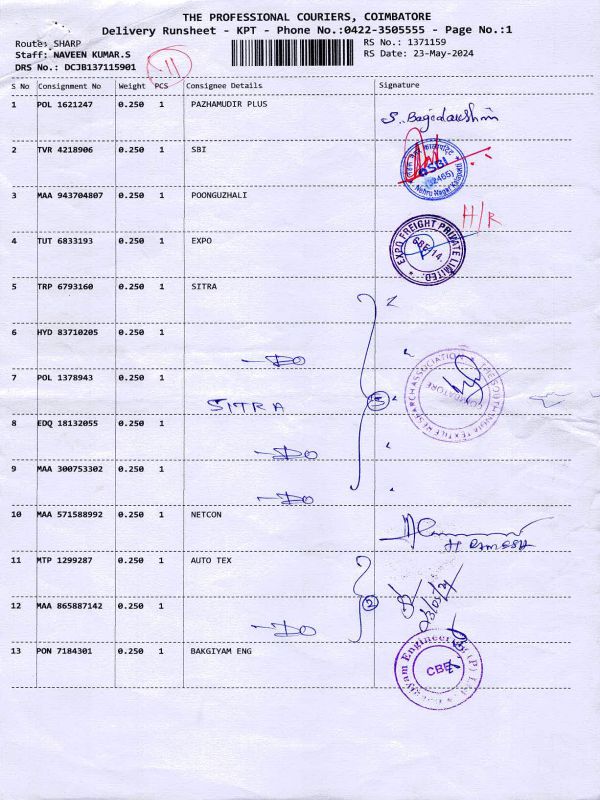 THE PROFESSIONAL COURIERS, COIMBATORE
Delivery Runsheet - KPT - Phone No.:0422-3505555 - Page No.:1
Route: SHARP
RS No.: 1371159
Staff: NAVEEN KUMAR.S
RS Date: 23-May-2024
DRS No.: DCJB137115901
11
S No Consignment No Weight PCS Consignee Details Signature
1 POL 1621247 0.250 1 PAZHAMUDIR PLUS
2 TVR 4218906 0.250 1 SBI
SBI
Nehru Nagar
3 MAA 943704807 0.250 1 POONGUZHALI
H/R
4 TUT 6833193 0.250 1 EXPO
EXPO FREIGHT PRIVATE LIMITED.
5 TRP 6793160 0.250 1 SITRA
6 HYD 83710205 0.250 1
DO
7 POL 1378943 0.250 1
SITRA
5
THE SOUTH INDIA TEXTILE RESEARCH ASSOCIATION
COIMBATORE
8 EDQ 18132055 0.250 1
DO
9 MAA 300753302 0.250 1
DO
10 MAA 571588992 0.250 1 NETCON
H RAMESH
11 MTP 1299287 0.250 1 AUTO TEX
23/05/24
12 MAA 865887142 0.250 1
DO
2
13 PON 7184301 0.250 1 BAKGIYAM ENG
Bakgiyam Engineering (P) Ltd
CBE